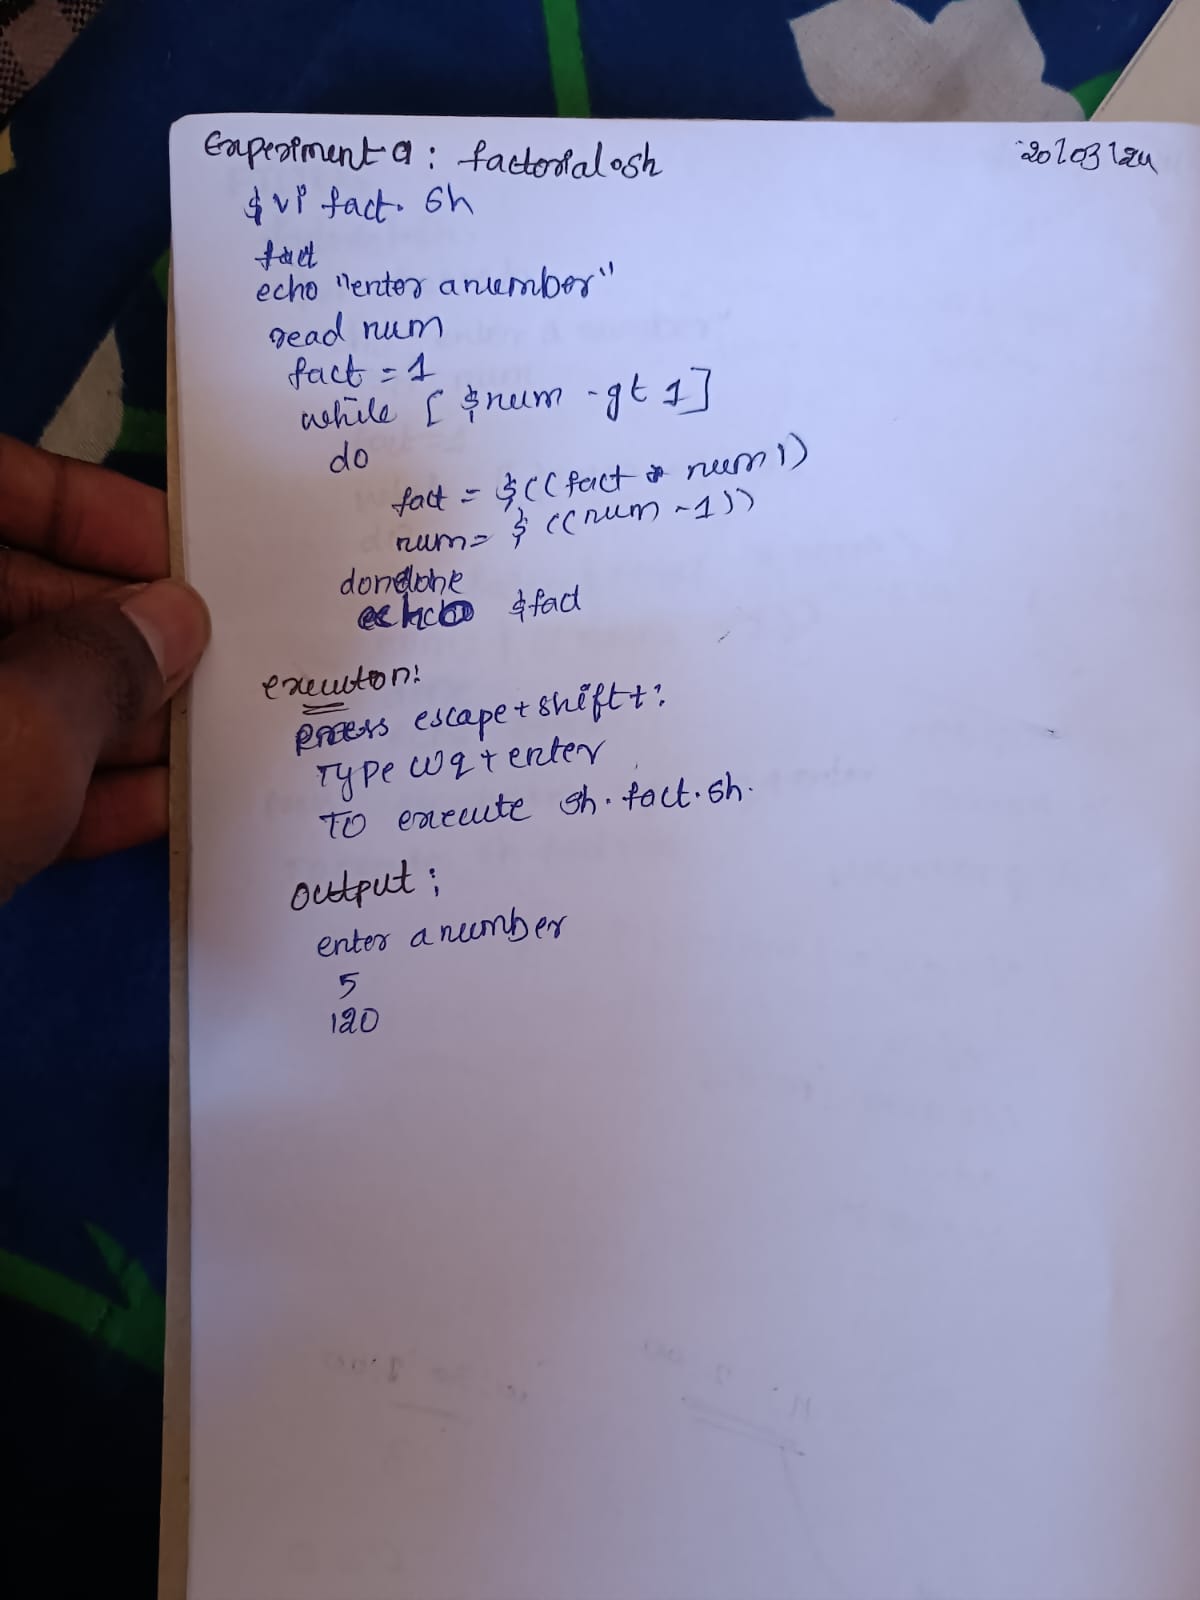 Experiment 9: factorial.sh 20/03/24
$ vi fact. sh
echo "enter a number"
read num
fact = 1
while [ $num -gt 1]
do
fact = $((fact * num))
num= $((num -1))
done
echo $fact
execution:
Press escape+shift+:
Type wq + enter
To execute sh. fact. sh.
output:
enter a number
5
120